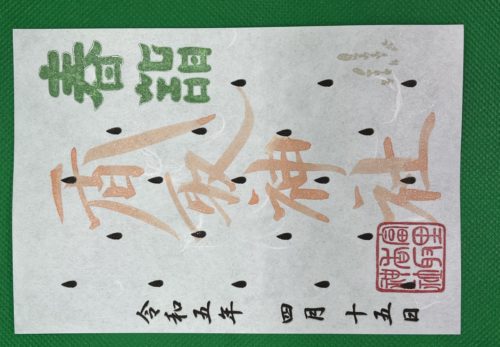 春詣
香取神社
富里
香取
神社
令和五年 四月 十五日